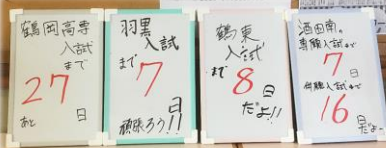 鶴岡高専
入試
まで
27
あと
日
羽黒
入試
まで
7
日
頑張ろう!!
鶴東
入試
まで
8
日
だよ!!
酒田南。
専願入試まで
7
日
併願入試まで
16
日だよ。